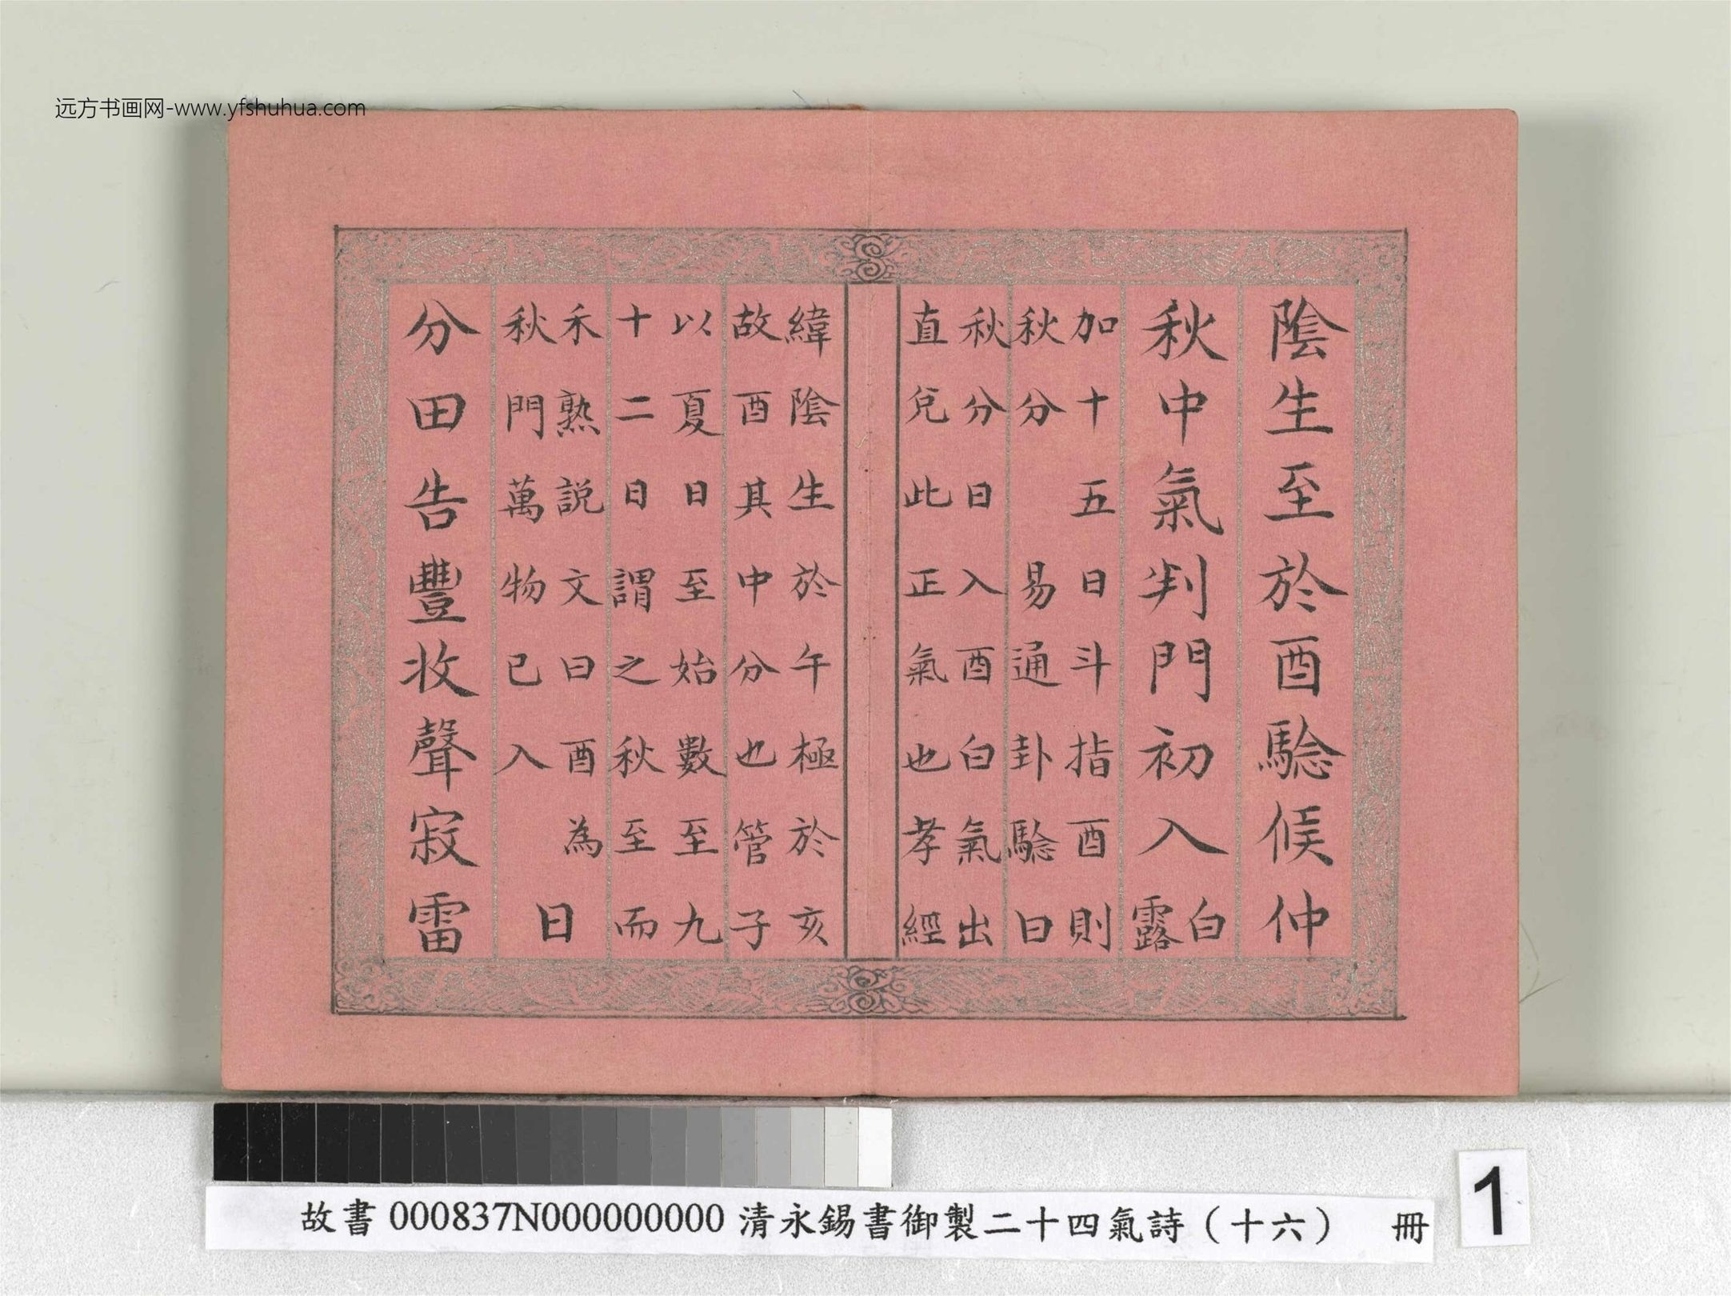 远方书画网-www.yfshuhua.com
陰生至於酉騐候仲
秋中氣判門初入白露
加十五日斗指酉則
秋分 易通卦騐曰
秋分日入酉白氣出
直兌此正氣也孝經
緯陰生於午極於亥
故酉其中分也管子
以夏日至始數至九
十二日謂之秋至而
禾熟説文曰酉為
秋門萬物已入
日
分田告豐收聲寂雷
故書000837N000000000 清永錫書御製二十四氣詩（十六） 冊
1